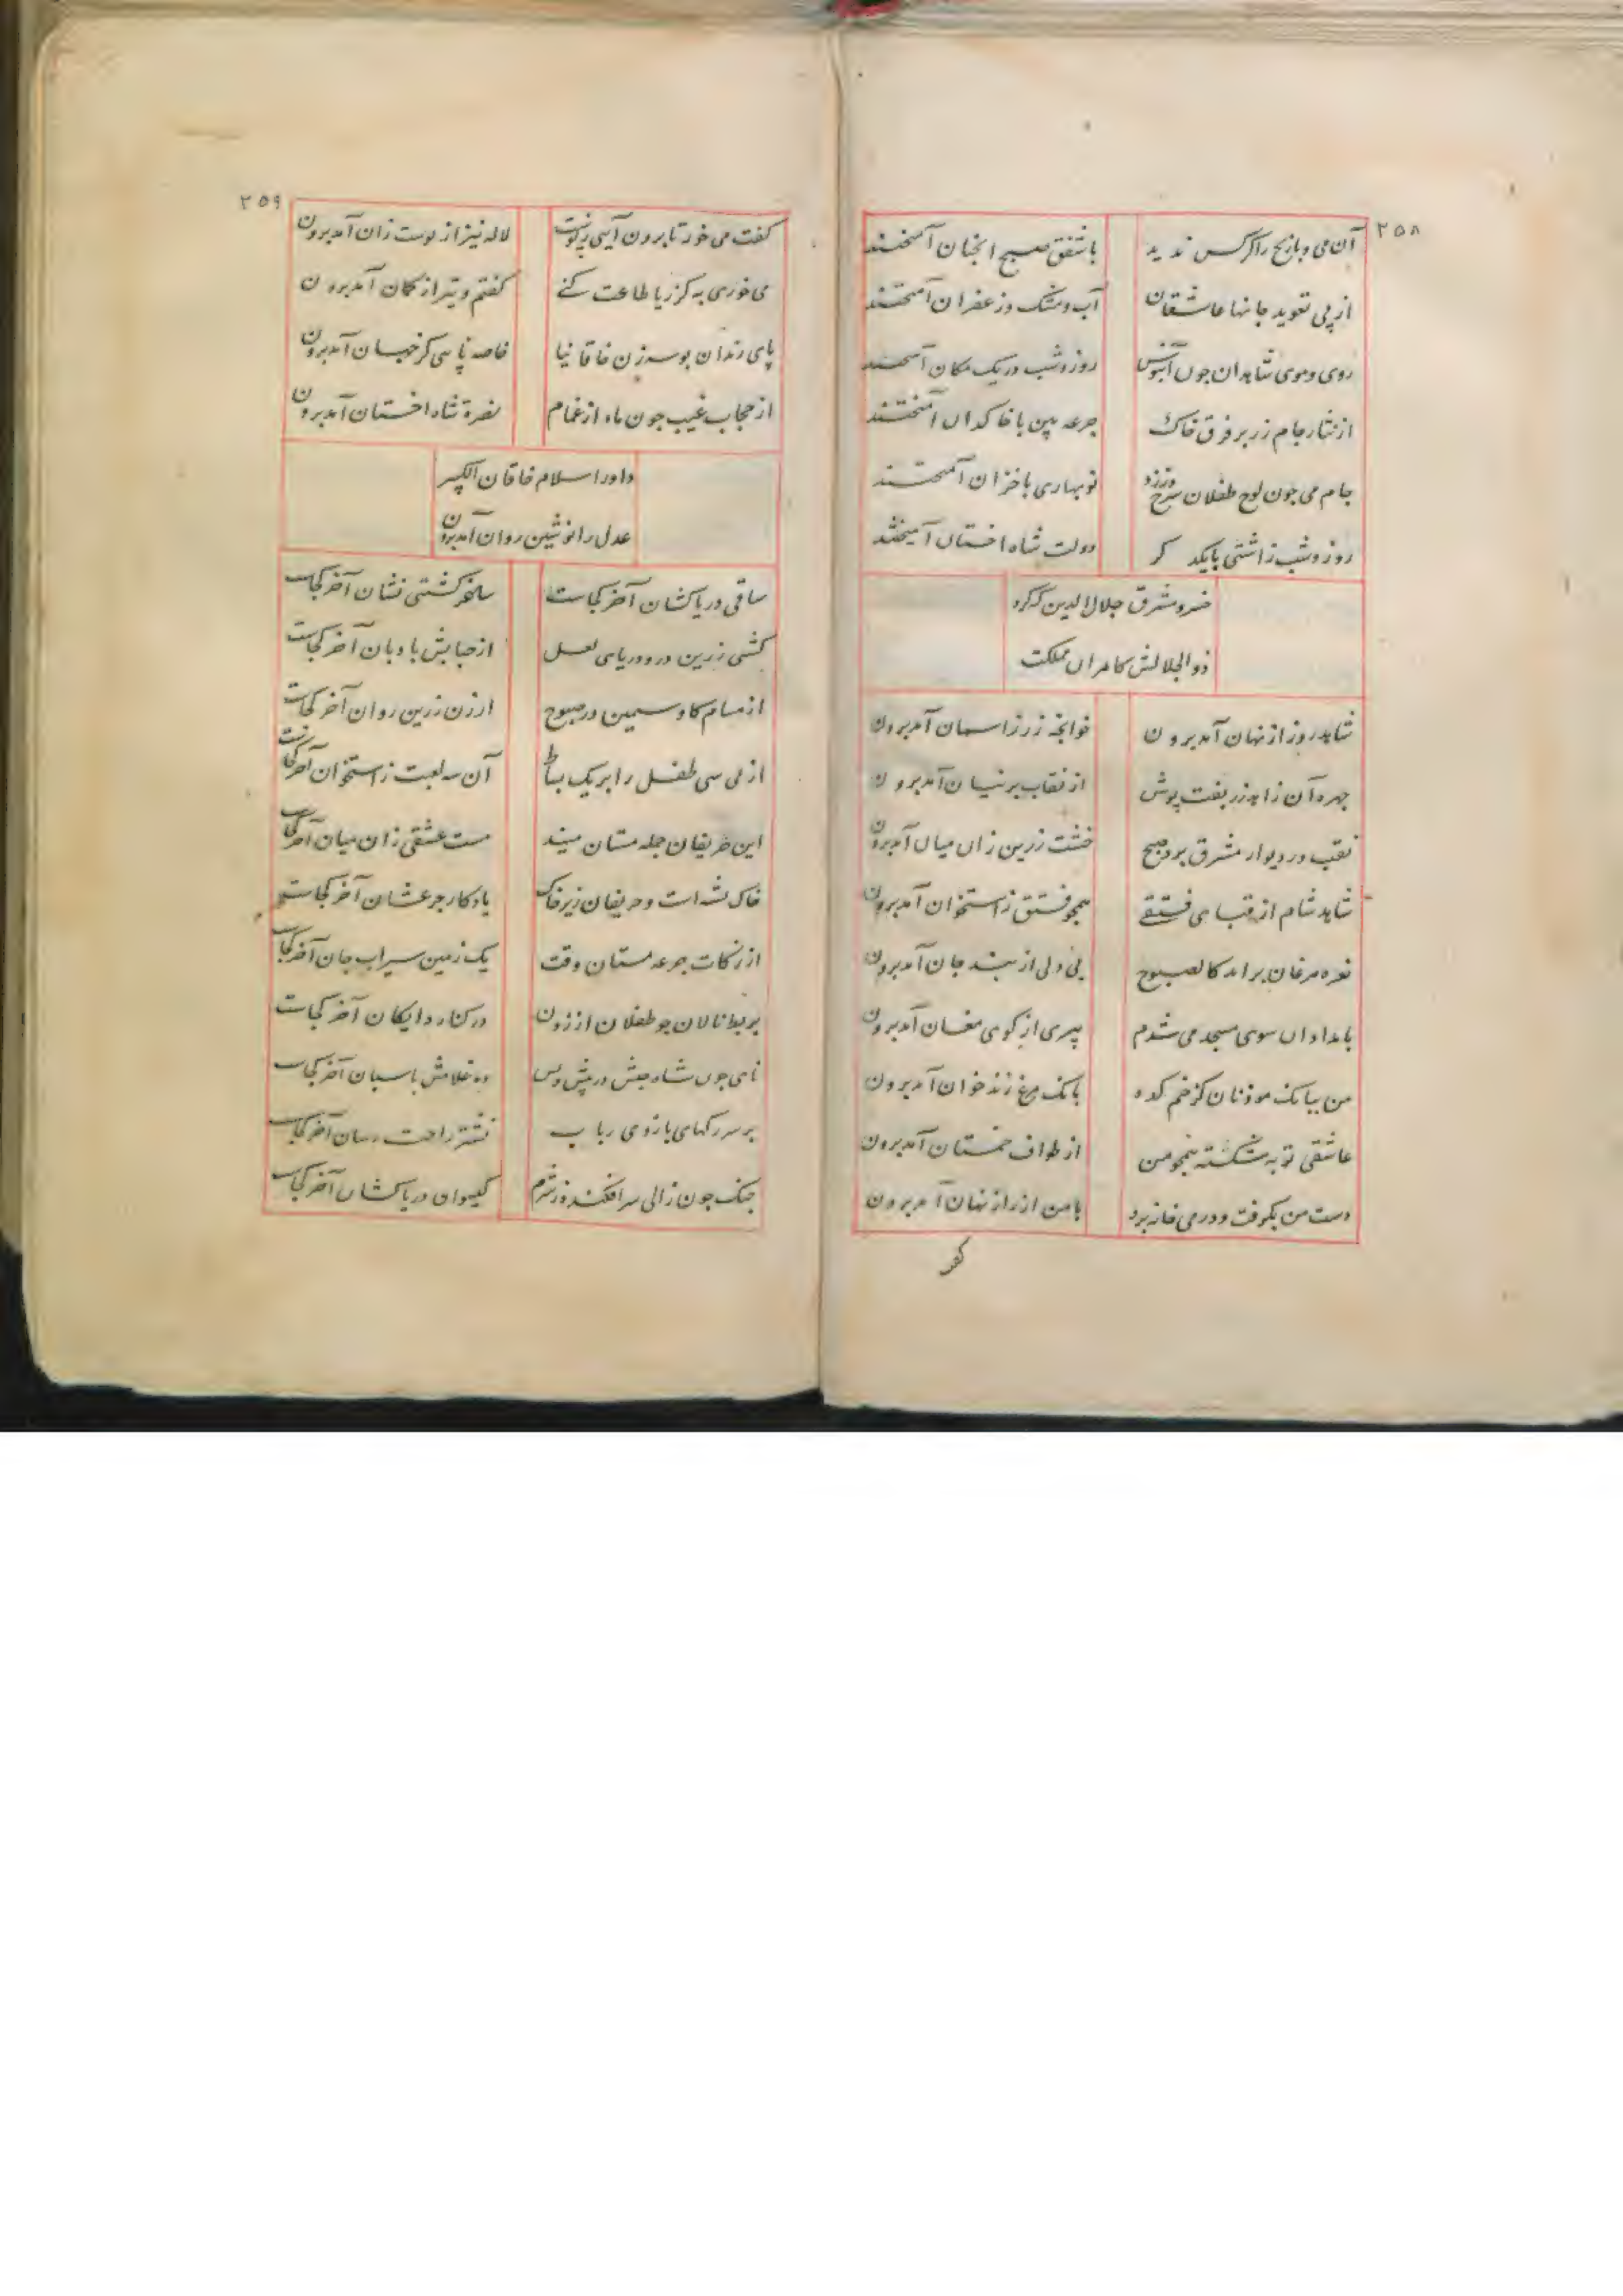 ۲۵۸
آن می و بازیچ را کر کس ندید با شفق صبح انچنان آمیختند
از پی تعوید جانها عاشقان آب و مشک و زعفران آمیختند
روی و موی شاهدان چون آبنوس روز و شب در یک مکان آمیختند
از نثار جام زر بر فرق خاک جرعه بین با خاکدان آمیختند
جام می چون لوح طفلان سرخ و زرد نوبهاری با خزان آمیختند
روز و شب را اشتی با یکد کر دولت شاه اخستان آمیختند
خسرو مشرق جلال الدین که کرد
ذو الجلالش کامران مملکت
شاهد روز از نهان آمد برون خوانچه زر ز اسمان آمد برون
چهره آن زاهد زربفت پوش از نقاب پرنیان آمد برون
نقب در دیوار مشرق برد صبح خشت زرین زان میان آمد برون
شاهد شام از قبای فستقی همچو فستق ز استخوان آمد برون
نعره مرغان بر امد کالصبوح بی دلی از بند جان آمد برون
بامدادان سوی مسجد می شدم پیری از کوی مغان آمد برون
من ببانک موذنان کز خم کده بانک مرغ زند خوان آمد برون
عاشقی توبه شکسته همچو من از طواف خمستان آمد برون
دست من بکرفت و در می خانه برد با من از راز نهان آمد برون
کفت
۲۵۹
کفت می خور تا برون آیی ز پوست لاله نیز از پوست زان آمد برون
می خوری به کز ریا طاعت کنی کفتم و تیر از کمان آمد برون
پای رندان بوسه زن خاقانیا خاصه پاسی کز خسان آمد برون
از حجاب غیب چون ماه از غمام نصرة شاه اخستان آمد برون
داور اسلام خاقان الکبیر
عدل را نوشین روان آمد برون
ساقی دریا کشان آخر کجاست ساغر کشتی نشان آخر کجاست
کشتی زرین در و دریای لعل از حبابش بادبان آخر کجاست
از مسام کاو سیمین در صبوح ارزن زرین روان آخر کجاست
از پی سی طفل را بر یک بساط آن سه لعبت ز استخوان آخر کجاست
این حریفان جمله مستان میند مست عشقی زان میان آخر کجاست
خاک تشنه است و حریفان زیر خاک یادکار جرعشان آخر کجاست
از زکات جرعه مستان وقت یک زمین سیراب جان آخر کجاست
بربط نالان چو طفلان از زدن در کنار دایکان آخر کجاست
نای چون شاه حبش در پیش و پس ده غلامش پاسبان آخر کجاست
بر سر رکهای بازوی رباب نشتر راحت رسان آخر کجاست
چنک چون زالی سر افکنده ز شرم کیسوان در پا کشان آخر کجاست